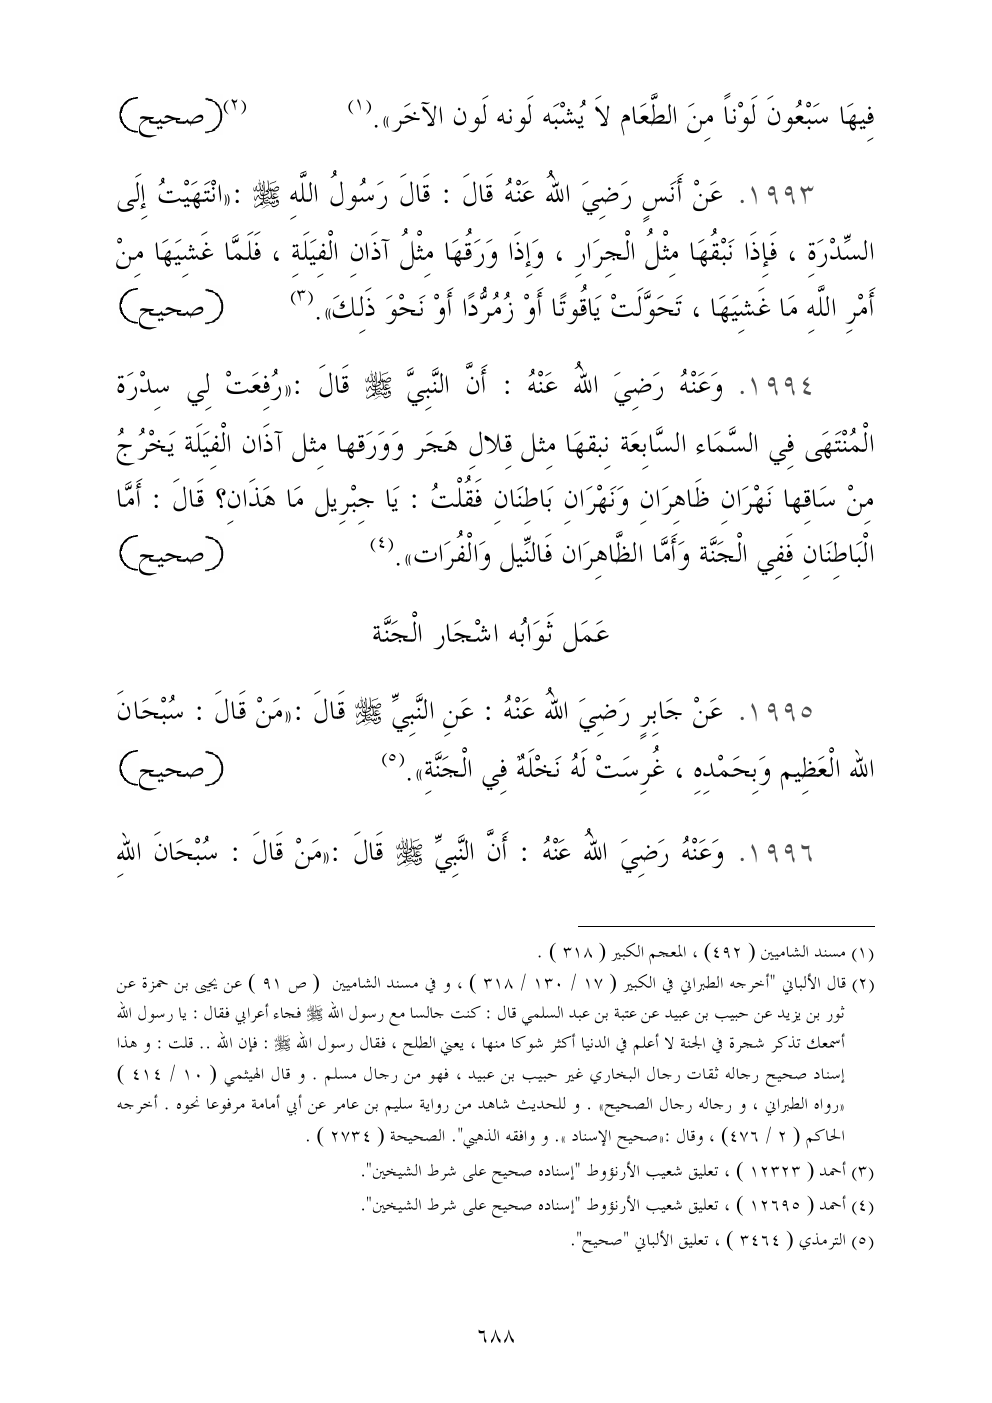 فِيهَا سَبْعُونَ لَوْناً مِنَ الطَّعَام لاَ يُشْبَه لَونه لَون الآخَر».(١) (٢)(صحيح)
١٩٩٣. عَنْ أَنَسٍ رَضِيَ اللهُ عَنْهُ قَالَ : قَالَ رَسُولُ اللَّهِ ﷺ :«انْتَهَيْتُ إِلَى
السِّدْرَةِ ، فَإِذَا نَبْقُهَا مِثْلُ الْجِرَارِ ، وَإِذَا وَرَقُهَا مِثْلُ آذَانِ الْفِيَلَةِ ، فَلَمَّا غَشِيَهَا مِنْ
أَمْرِ اللَّهِ مَا غَشِيَهَا ، تَحَوَّلَتْ يَاقُوتًا أَوْ زُمُرُّدًا أَوْ نَحْوَ ذَلِكَ».(٣) (صحيح)
١٩٩٤. وَعَنْهُ رَضِيَ اللهُ عَنْهُ : أَنَّ النَّبِيَّ ﷺ قَالَ :«رُفِعَتْ لِي سِدْرَة
الْمُنْتَهَى فِي السَّمَاء السَّابِعَة نِبقهَا مِثل قِلالِ هَجَر وَوَرَقها مِثل آذَان الْفِيَلَة يَخْرُجُ
مِنْ سَاقِها نَهْرَان ظَاهِرَان وَنَهْرَان بَاطِنَان فَقُلْتُ : يَا جِبْرِيل مَا هَذَانِ؟ قَالَ : أَمَّا
الْبَاطِنَانِ فَفِي الْجَنَّة وَأَمَّا الظَّاهِرَان فَالنِّيل وَالْفُرَات».(٤) (صحيح)
عَمَل ثَوَابُه اشْجَار الْجَنَّة
١٩٩٥. عَنْ جَابِرٍ رَضِيَ اللهُ عَنْهُ : عَنِ النَّبِيِّ ﷺ قَالَ :«مَنْ قَالَ : سُبْحَانَ
الله الْعَظِيم وَبِحَمْدِهِ ، غُرِسَتْ لَهُ نَخْلَةٌ فِي الْجَنَّةِ».(٥) (صحيح)
١٩٩٦. وَعَنْهُ رَضِيَ اللهُ عَنْهُ : أَنَّ النَّبِيِّ ﷺ قَالَ :«مَنْ قَالَ : سُبْحَانَ اللهِ
(١) مسند الشاميين ( ٤٩٢) ، المعجم الكبير ( ٣١٨ ) .
(٢) قال الألباني "أخرجه الطبراني في الكبير ( ١٧ / ١٣٠ / ٣١٨ ) ، و في مسند الشاميين ( ص ٩١ ) عن يحيى بن حمزة عن
ثور بن يزيد عن حبيب بن عبيد عن عتبة بن عبد السلمي قال : كنت جالسا مع رسول الله ﷺ فجاء أعرابي فقال : يا رسول الله
أسمعك تذكر شجرة في الجنة لا أعلم في الدنيا أكثر شوكا منها ، يعني الطلح ، فقال رسول الله ﷺ : فإن الله .. قلت : و هذا
إسناد صحيح رجاله ثقات رجال البخاري غير حبيب بن عبيد ، فهو من رجال مسلم . و قال الهيثمي ( ١٠ / ٤١٤ )
«رواه الطبراني ، و رجاله رجال الصحيح» . و للحديث شاهد من رواية سليم بن عامر عن أبي أمامة مرفوعا نحوه . أخرجه
الحاكم ( ٢ / ٤٧٦) ، وقال :«صحيح الإسناد ». و وافقه الذهبي". الصحيحة ( ٢٧٣٤ ) .
(٣) أحمد ( ١٢٣٢٣ ) ، تعليق شعيب الأرنؤوط "إسناده صحيح على شرط الشيخين".
(٤) أحمد ( ١٢٦٩٥ ) ، تعليق شعيب الأرنؤوط "إسناده صحيح على شرط الشيخين".
(٥) الترمذي ( ٣٤٦٤ ) ، تعليق الألباني "صحيح".
٦٨٨